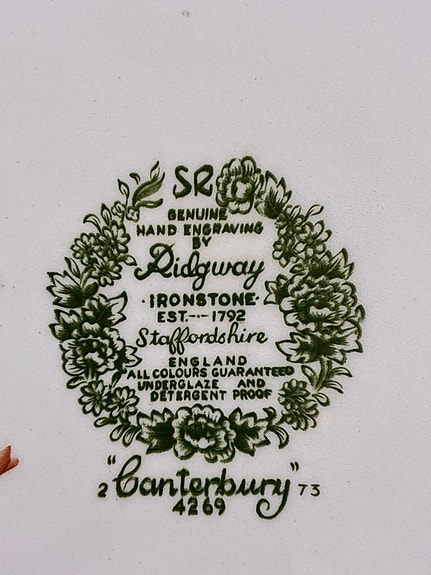 SR
GENUINE
HAND ENGRAVING
BY
Ridgway
·IRONSTONE·
EST.--·-1792
Staffordshire
ENGLAND
ALL COLOURS GUARANTEED
UNDERGLAZE AND
DETERGENT PROOF
2 "Canterbury" 73
4269